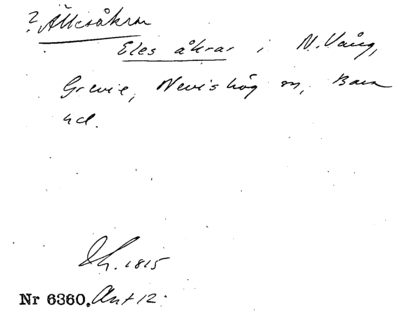 ? Ällesåkrar
Eles åkrar i N. Vång,
Grevie, Nevishög sn, Bara
hd.
Sk. 1815
Nr 6360. Ant 12.